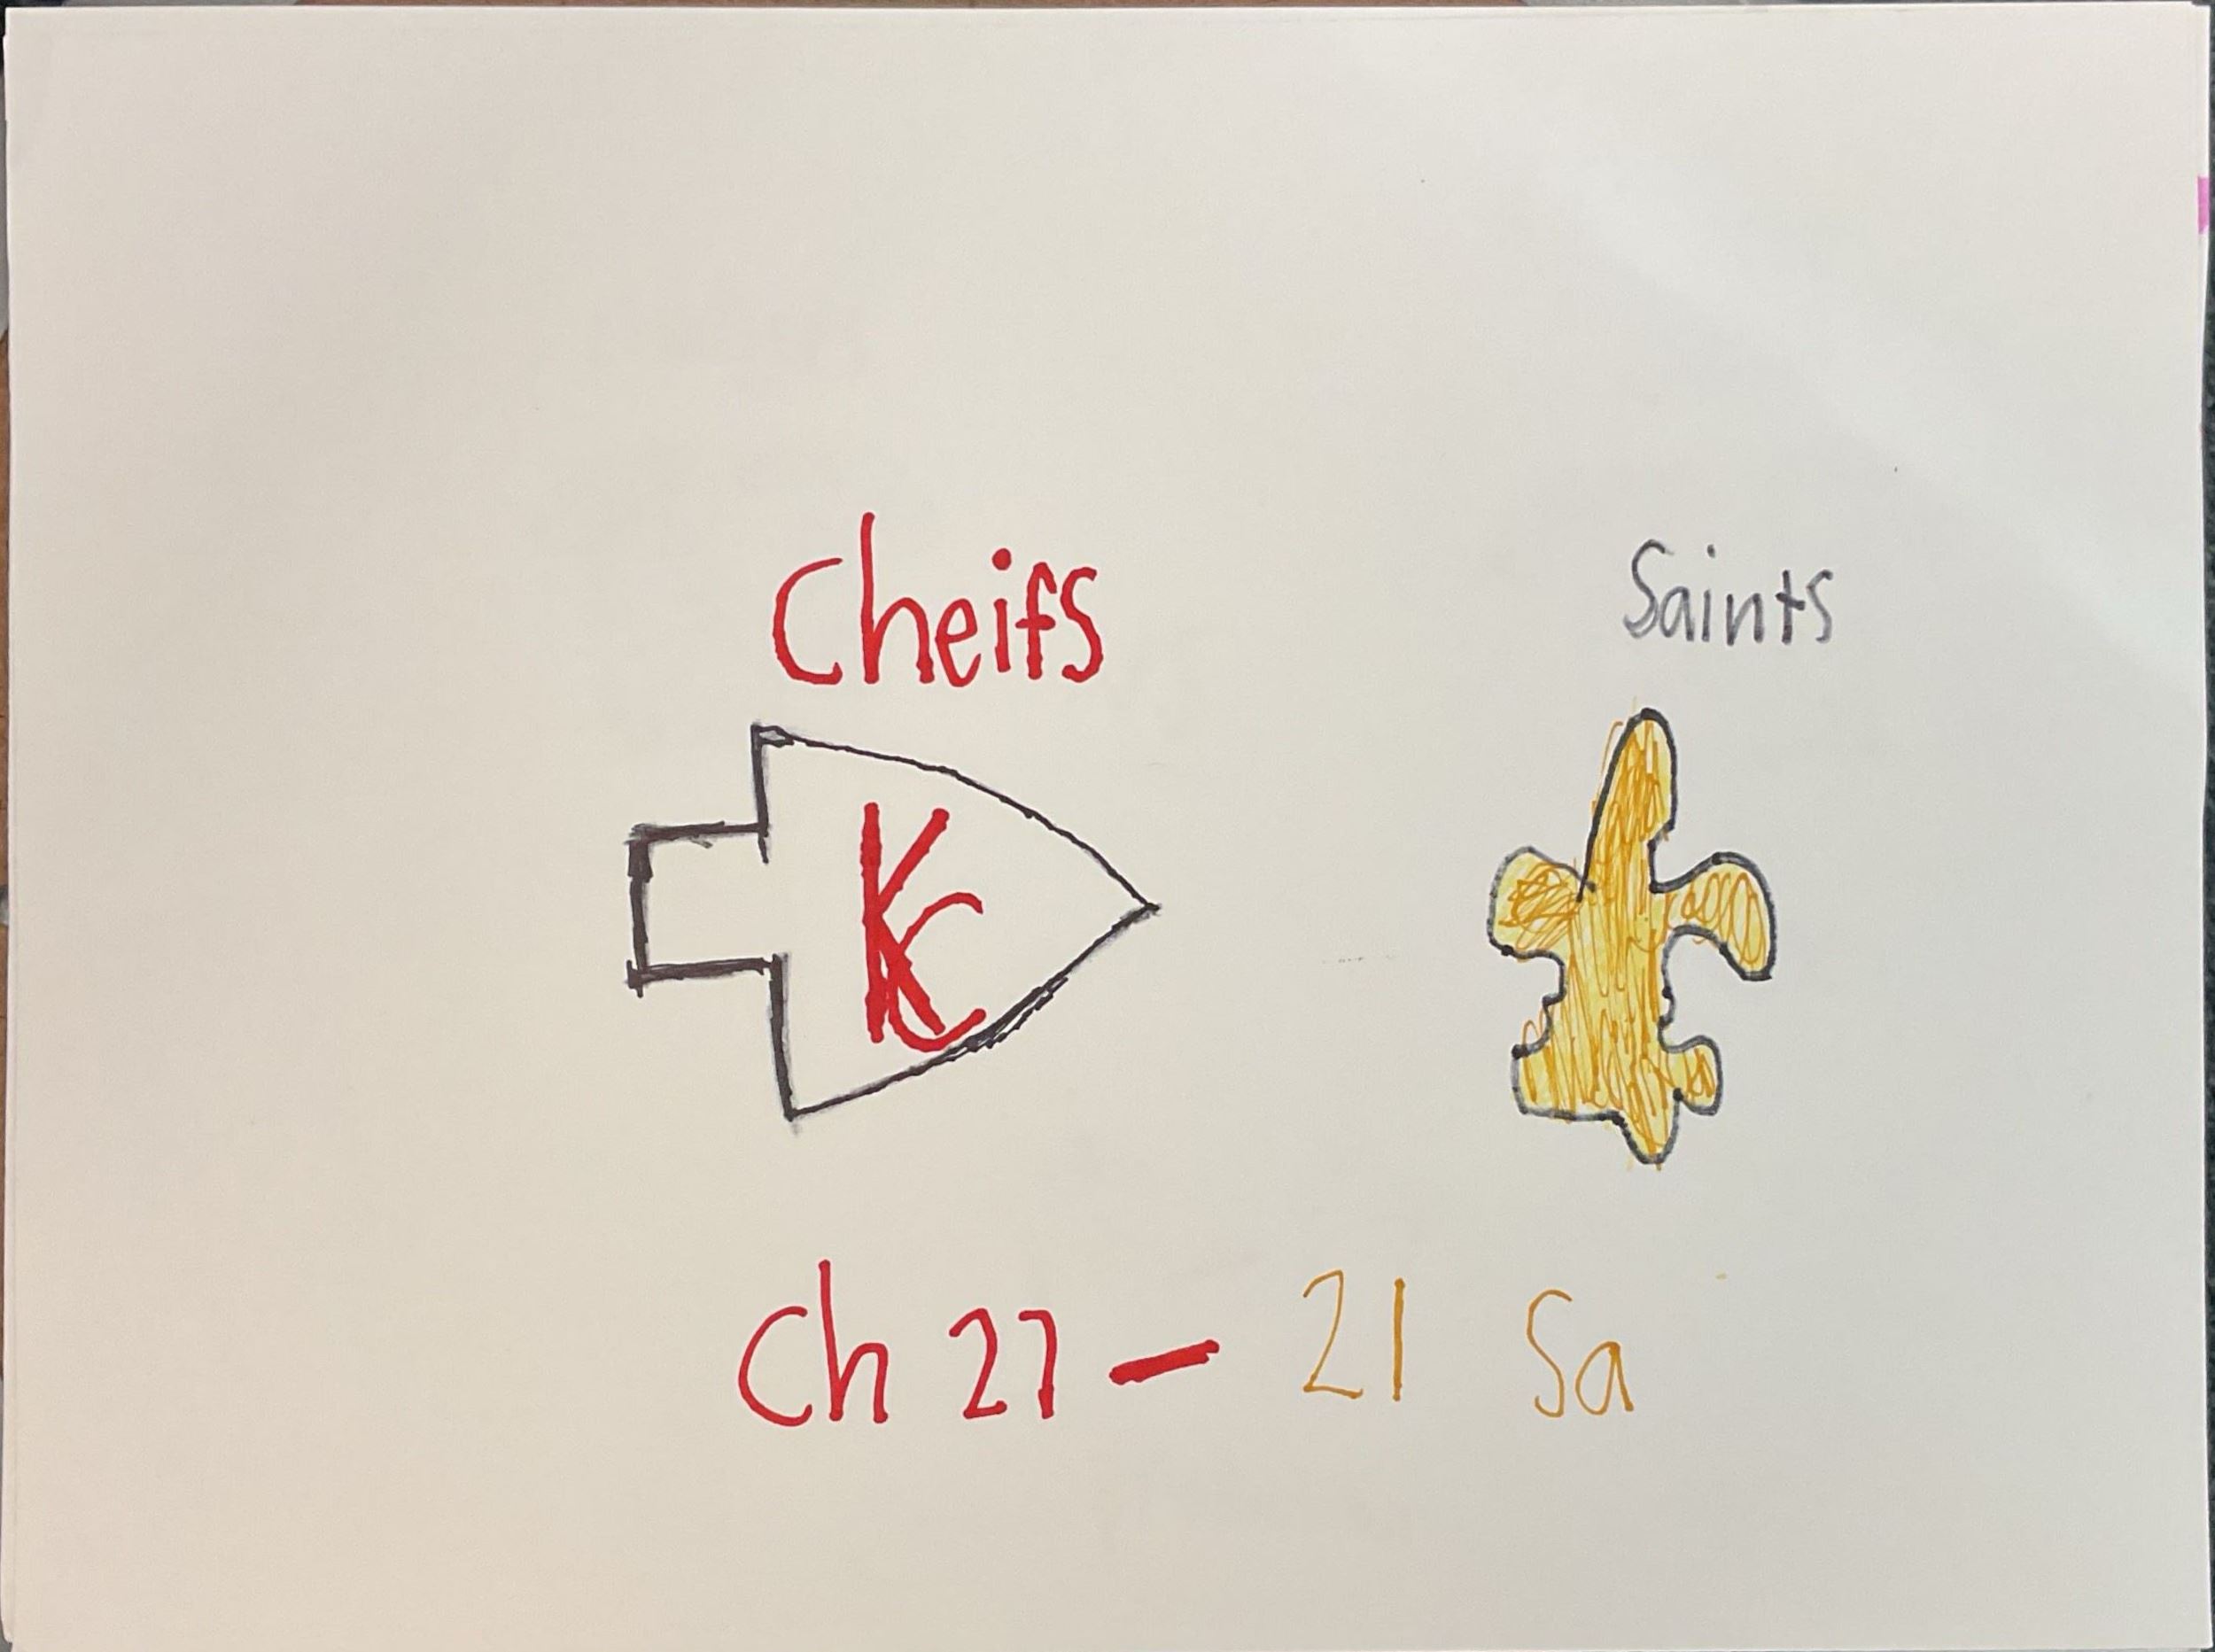 Cheifs Saints
KC
Ch 27 - 21 Sa